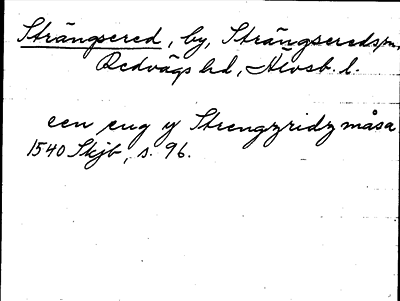 Strängsered, by, Strängsereds sn,
Redvägs hd, Älvsb. l.
een eng y Strengzridz måsa
1540 Skjb, s. 96.